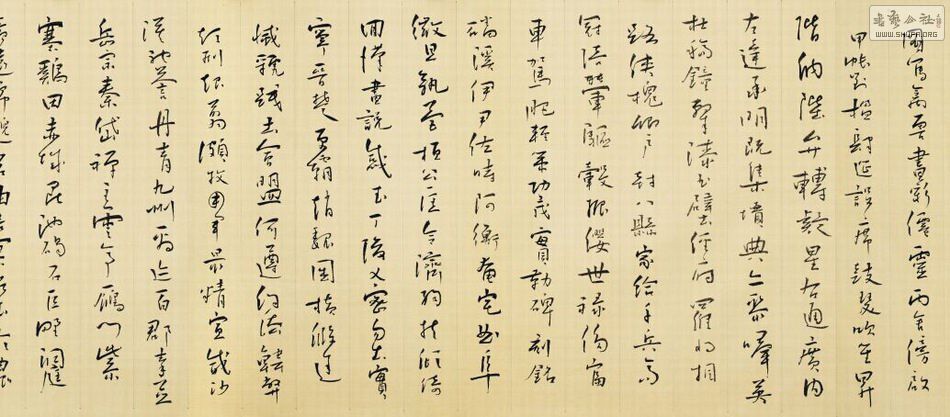 圖寫禽獸畫彩僊靈丙舍傍啟
甲帳對楹肆筵設席鼓瑟吹笙昇
階納陛弁轉疑星右通廣內
左達承明既集墳典亦聚群英
杜稿鍾隸漆書壁經府羅將相
路俠槐卿戶封八縣家給千兵高
冠陪輦驅轂振纓世祿侈富
車駕肥輕策功茂實勒碑刻銘
磻溪伊尹佐時阿衡奄宅曲阜
微旦孰營桓公匡合濟弱扶傾綺
回漢惠說感武丁俊乂密勿士實
寧晉楚更霸趙魏困橫假途
滅虢踐土會盟何遵約法韓弊
煩刑起翦頗牧用軍最精宣威沙
漠馳譽丹青九州禹迹百郡秦并
岳宗泰岱禪主雲亭鴈門紫
塞雞田赤城昆池碣石巨野洞庭
書藝公社
WWW.SHUFA.ORG